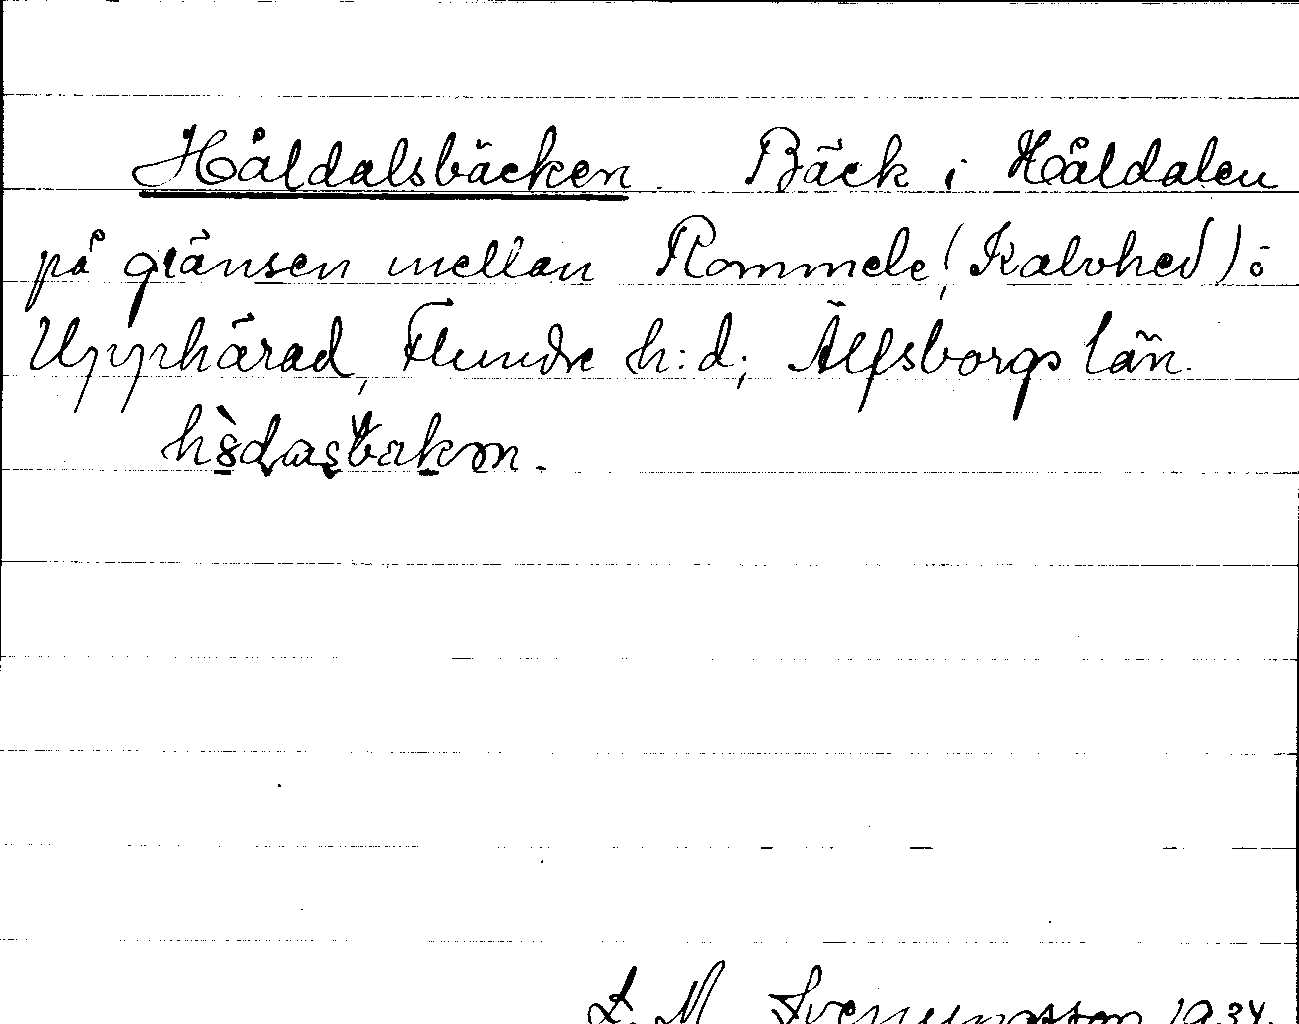 Håldalsbäcken. Bäck i Håldalen
på gränsen mellan Rommele (Kalvhed) o
Upphärad, Flundre h:d; Älfsborgs län.
S. M. Svenungsson 1934.